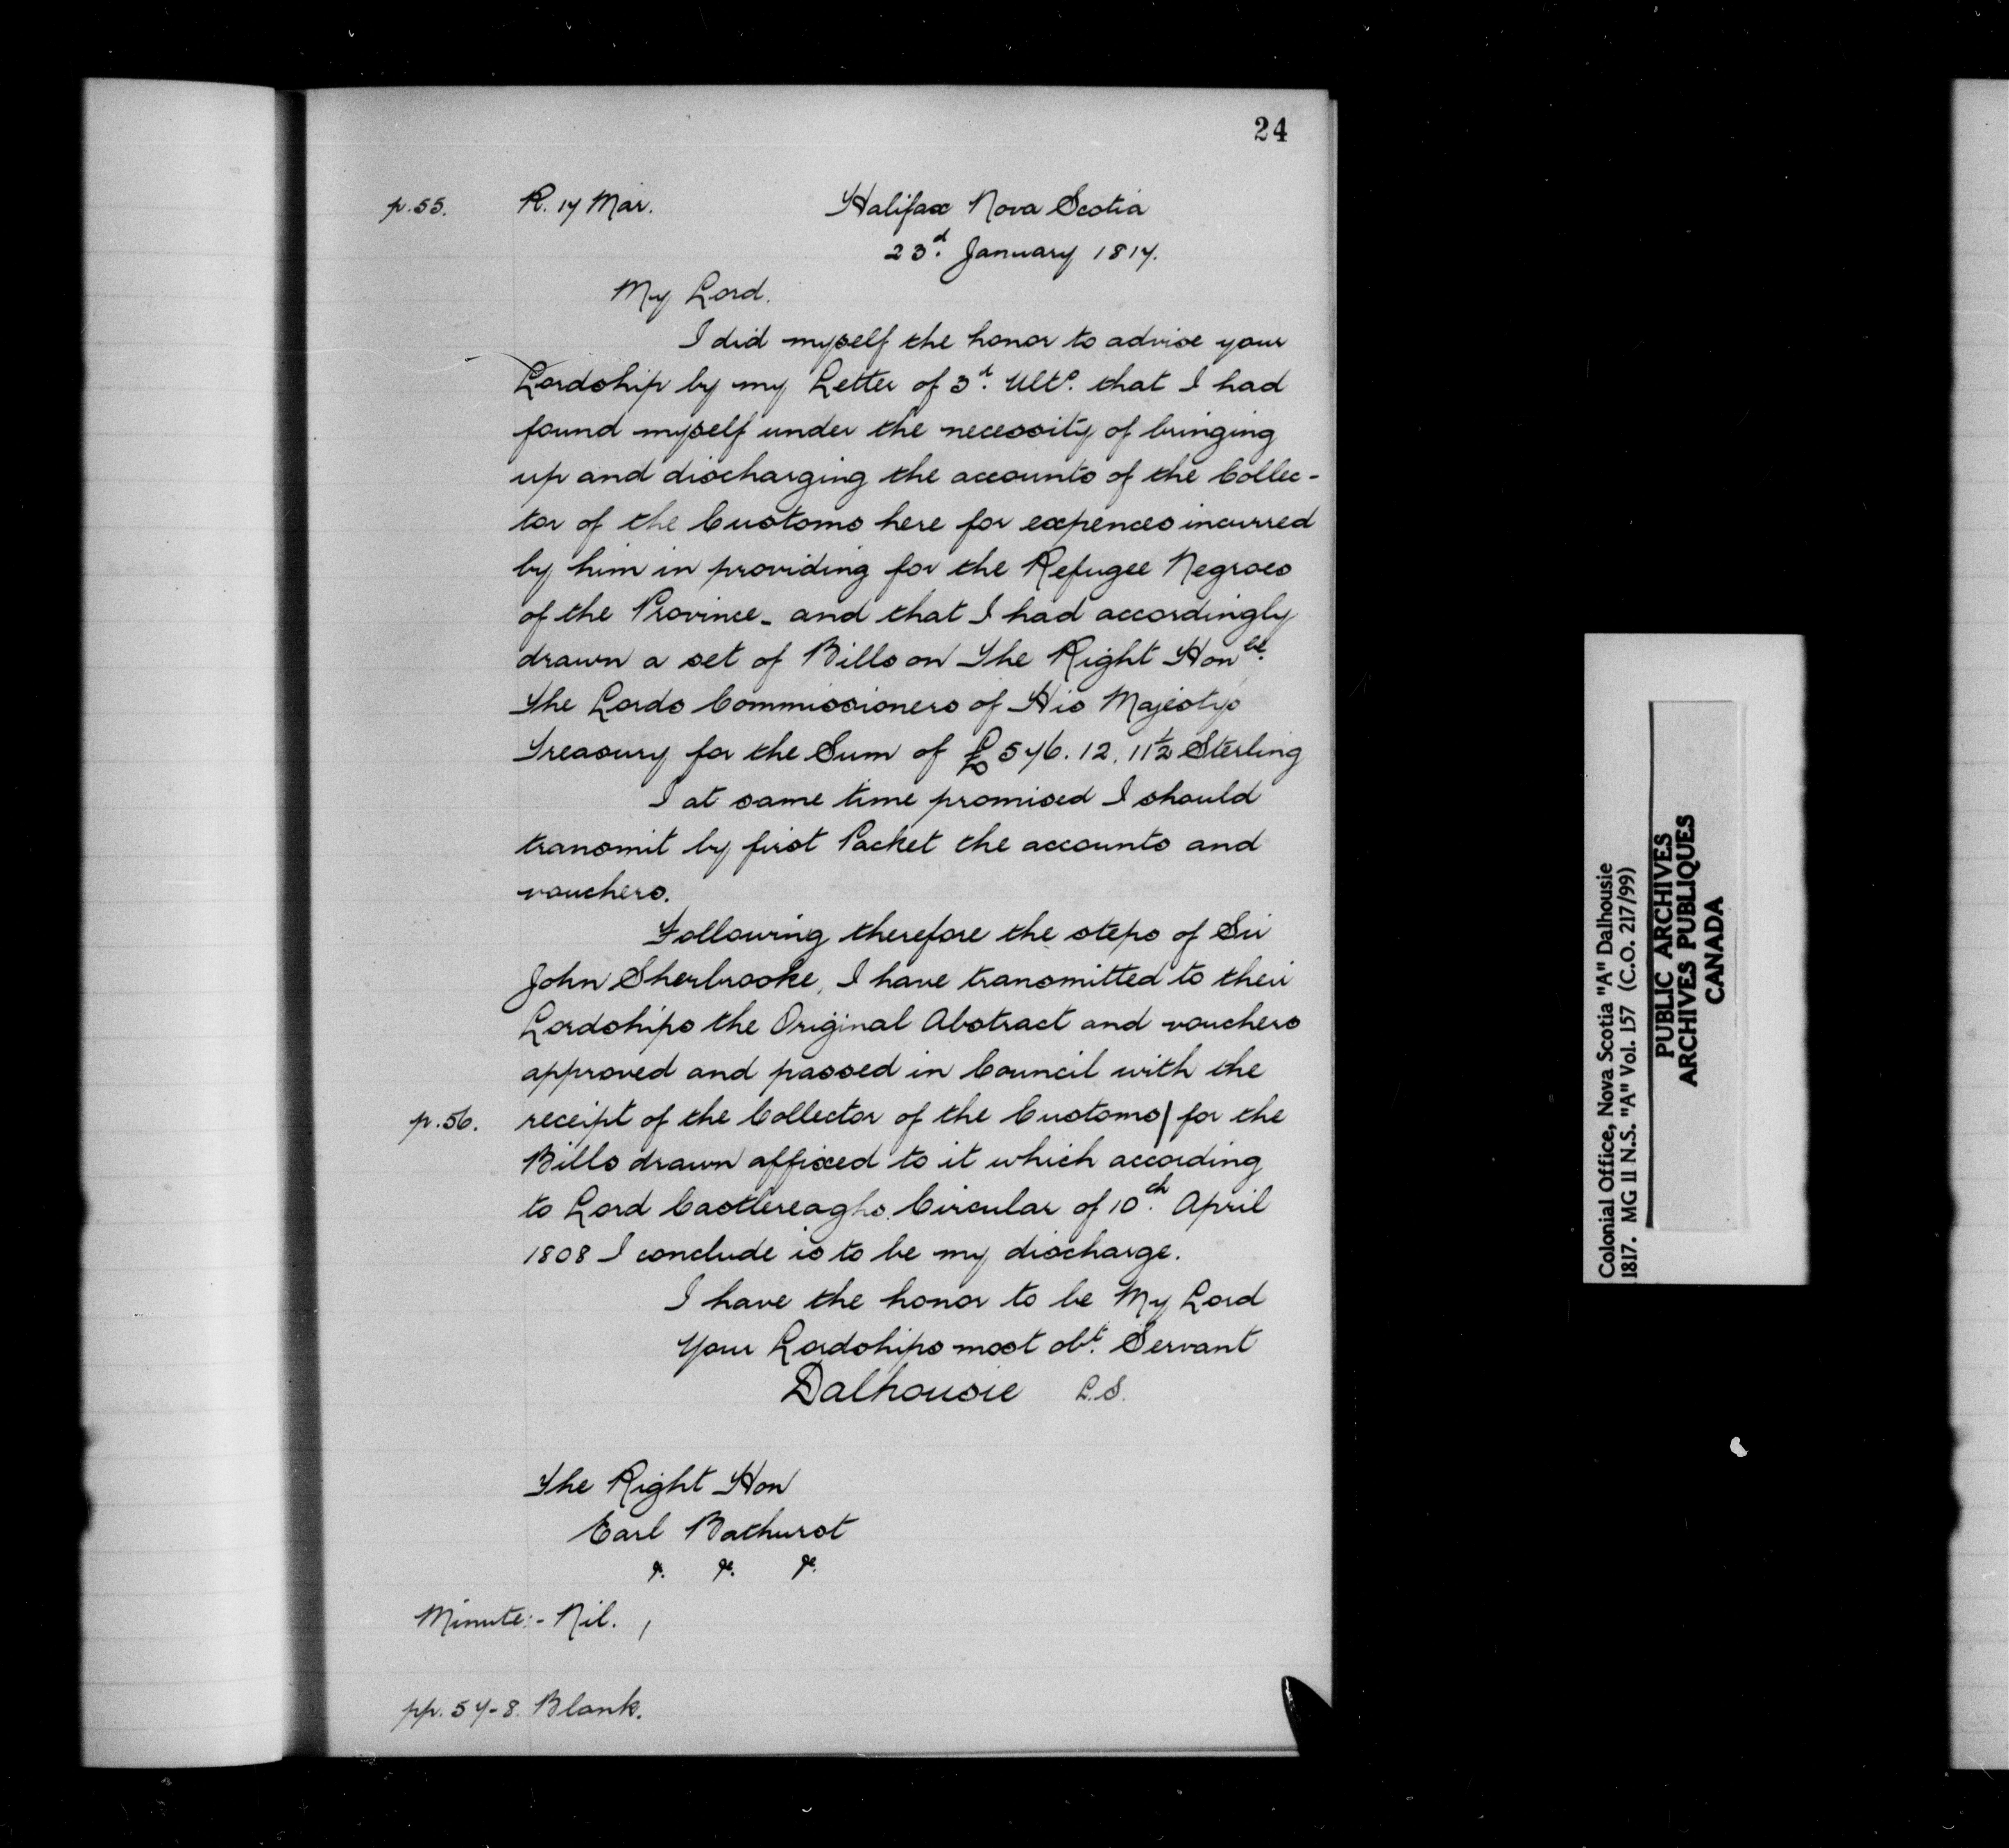 24
p.55. R. 17 Mar. Halifax Nova Scotia
23d. January 1817.
My Lord.
I did myself the honor to advise your
Lordship by my Letter of 3d. Ulto. that I had
found myself under the necessity of bringing
up and discharging the accounts of the Collec-
tor of the Customs here for expences incurred
by him in providing for the Refugee Negroes
of the Province - and that I had accordingly
drawn a set of Bills on The Right Honble.
The Lords Commissioners of His Majestys
Treasury for the Sum of £576. 12. 11½ Sterling
I at same time promised I should
transmit by first Packet the accounts and
vouchers.
Following therefore the steps of Sir
John Sherbrooke, I have transmitted to their
Lordships the Original Abstract and vouchers
approved and passed in Council with the
p.56. receipt of the Collector of the Customs| for the
Bills drawn affixed to it which according
to Lord Castlereaghs Circular of 10th. April
1808 I conclude is to be my discharge.
I have the honor to be My Lord
Your Lordships most obt. Servant
Dalhousie L.S.
The Right Hon
Earl Bathurst
&. &c. &c.
Minute:- Nil.
pp. 57-8. Blank.
Colonial Office, Nova Scotia "A" Dalhousie
1817. MG 11 N.S. "A" Vol. 157 (C.O. 217/99)
PUBLIC ARCHIVES
ARCHIVES PUBLIQUES
CANADA